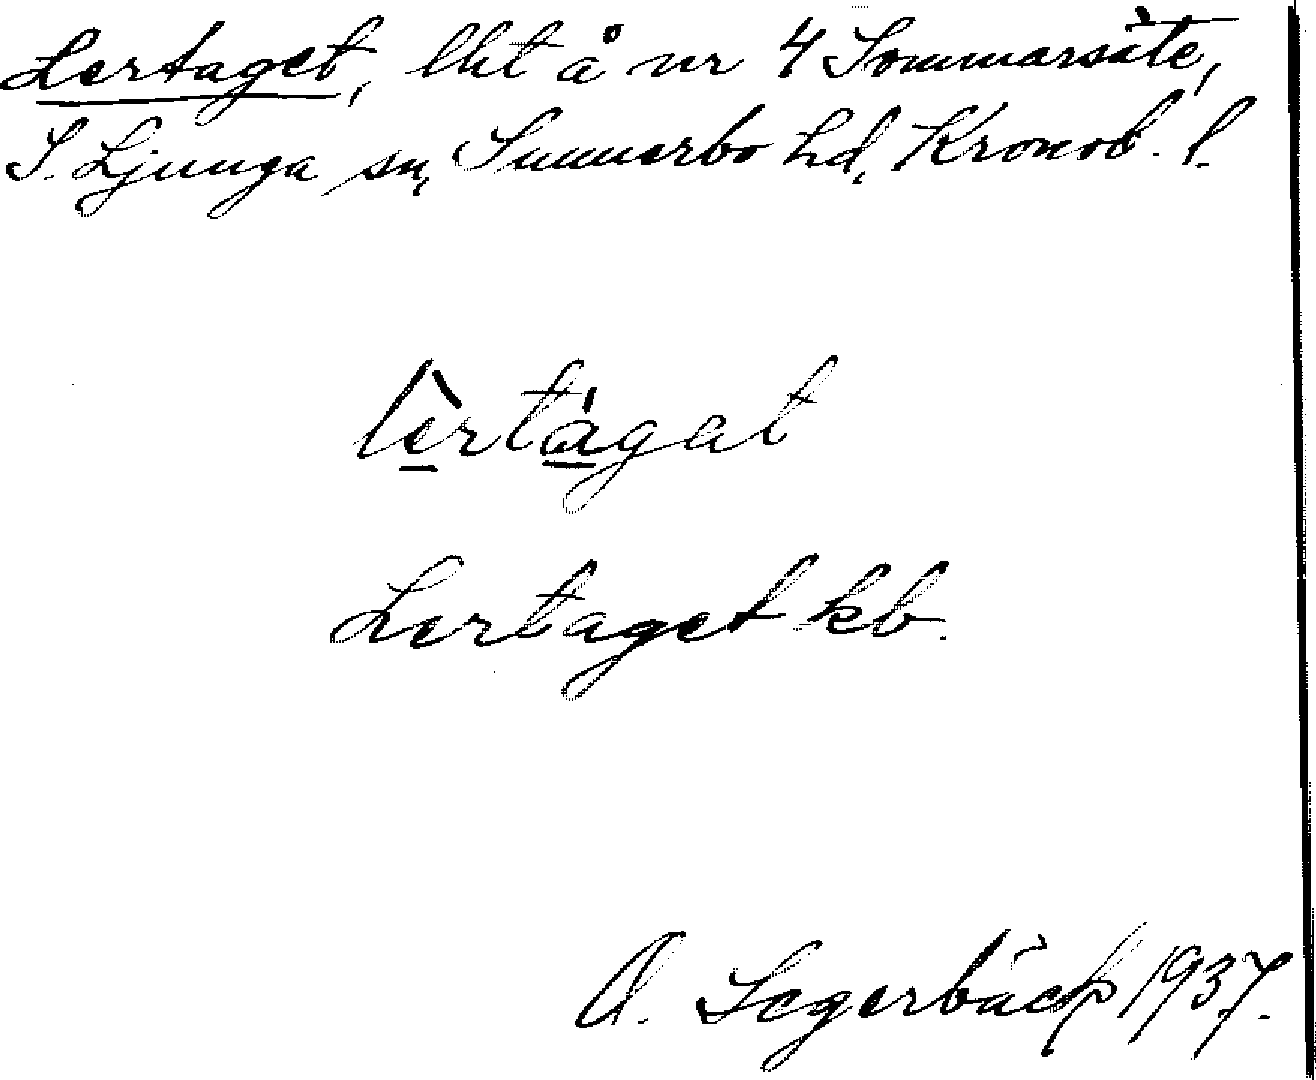 Lertaget, lht å nr 4 Sommarsäte,
S. Ljunga sn, Sunnerbo hd, Kronob. l.
lèrtágat
Lertaget kb.
A. Segerbäck 1937.